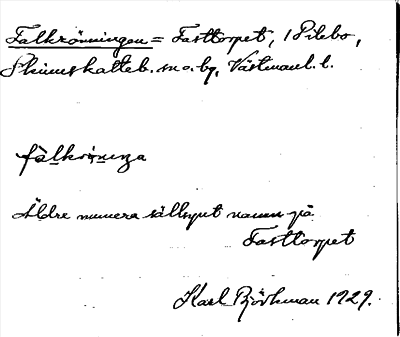 Falkrönningen = Fasttorpet, i Pilebo,
Skinnskatteb. sn o. bg, Västmanl. l.
falkröninga
Äldre numera sällsynt namn på
Fasttorpet
Karl Björkman 1929.